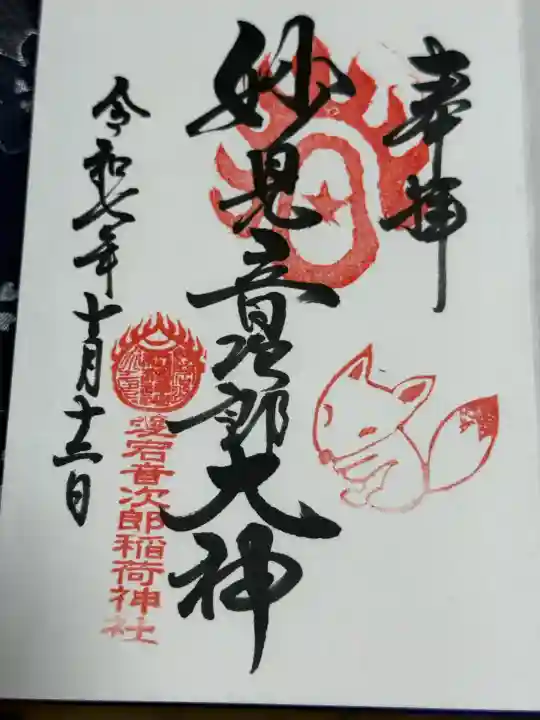 奉拝
妙見音次郎大神
愛宕音次郎稲荷神社
令和七年十月十三日